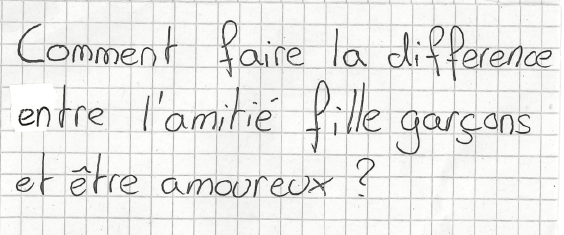 Comment faire la difference
entre l'amitié fille garçons
et être amoureux ?